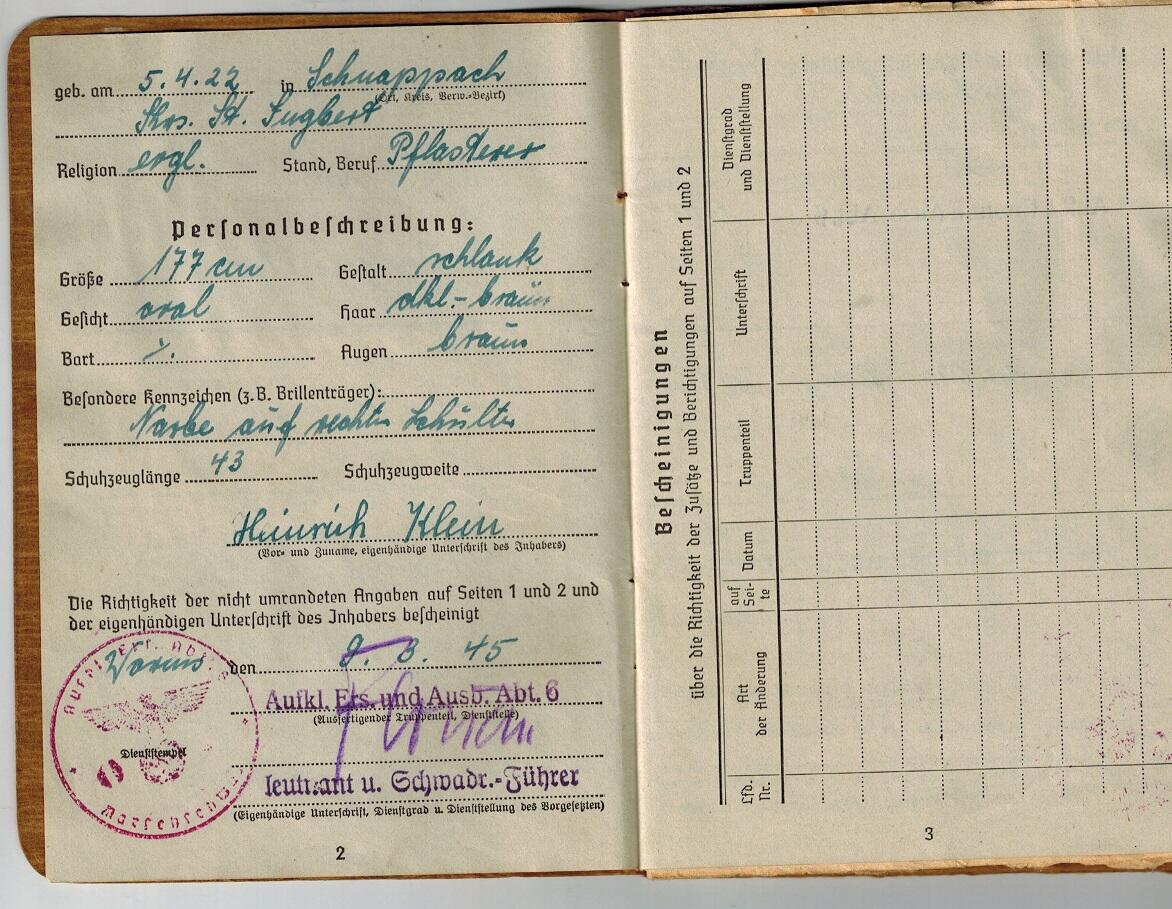 geb. am 5.4.22 in Schnappach
(Ort, Kreis, Verw.-Bezirk)
Krs. St. Ingbert
Religion evgl. Stand, Beruf Pflasterer
Personalbeschreibung:
Größe 177 cm Gestalt schlank
Gesicht oval Haar dkl.-braun
Bart ./. Augen braun
Besondere Kennzeichen (z.B. Brillenträger):
Narbe auf rechter Schulter
Schuhzeuglänge 43 Schuhzeugweite
Heinrich Klein
(Vor- und Zuname, eigenhändige Unterschrift des Inhabers)
Die Richtigkeit der nicht umrandeten Angaben auf Seiten 1 und 2 und
der eigenhändigen Unterschrift des Inhabers bescheinigt
Worms den 9. 3. 45
Aufkl. Ers. und Ausb. Abt. 6
(Ausfertigender Truppenteil, Dienststelle)
Dienststempel
leutnant u. Schwadr.-Führer
(Eigenhändige Unterschrift, Dienstgrad u. Dienststellung des Vorgesetzten)
2
Bescheinigungen
über die Richtigkeit der Zusätze und Berichtigungen auf Seiten 1 und 2
Lfd.
Nr.
Art
der Änderung
auf
Sei-
te
Datum
Truppenteil
Unterschrift
Dienstgrad
und Dienststellung
3